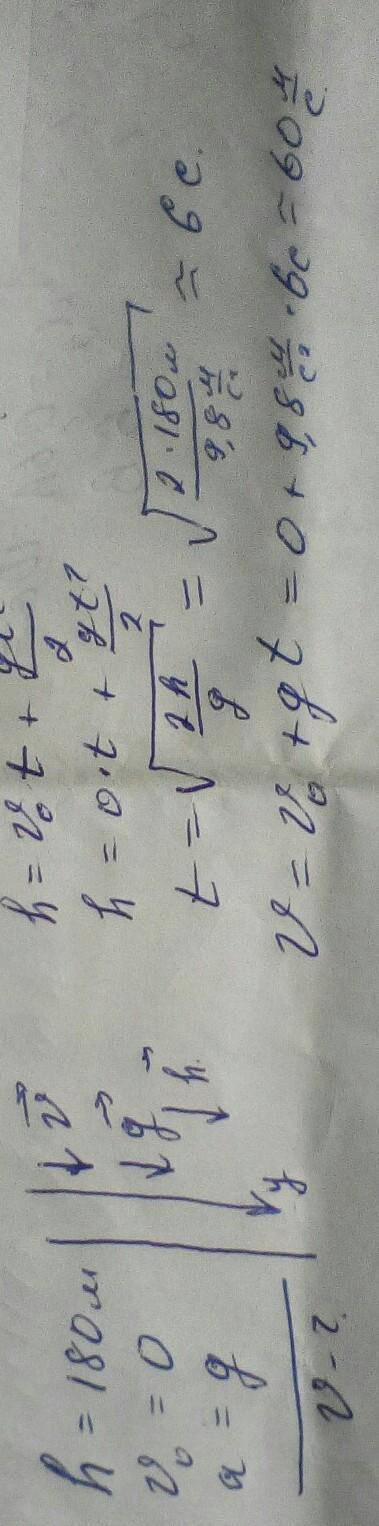 h = 180м
v₀ = 0
a = g
v - ?
v⃗
g⃗
h⃗
y
h = v₀t + gt²/2
h = 0·t + gt²/2
t = √(2h/g) = √(2·180м/9,8 м/с²) ≈ 6 с.
v = v₀ + gt = 0 + 9,8 м/с² · 6с ≈ 60 м/с